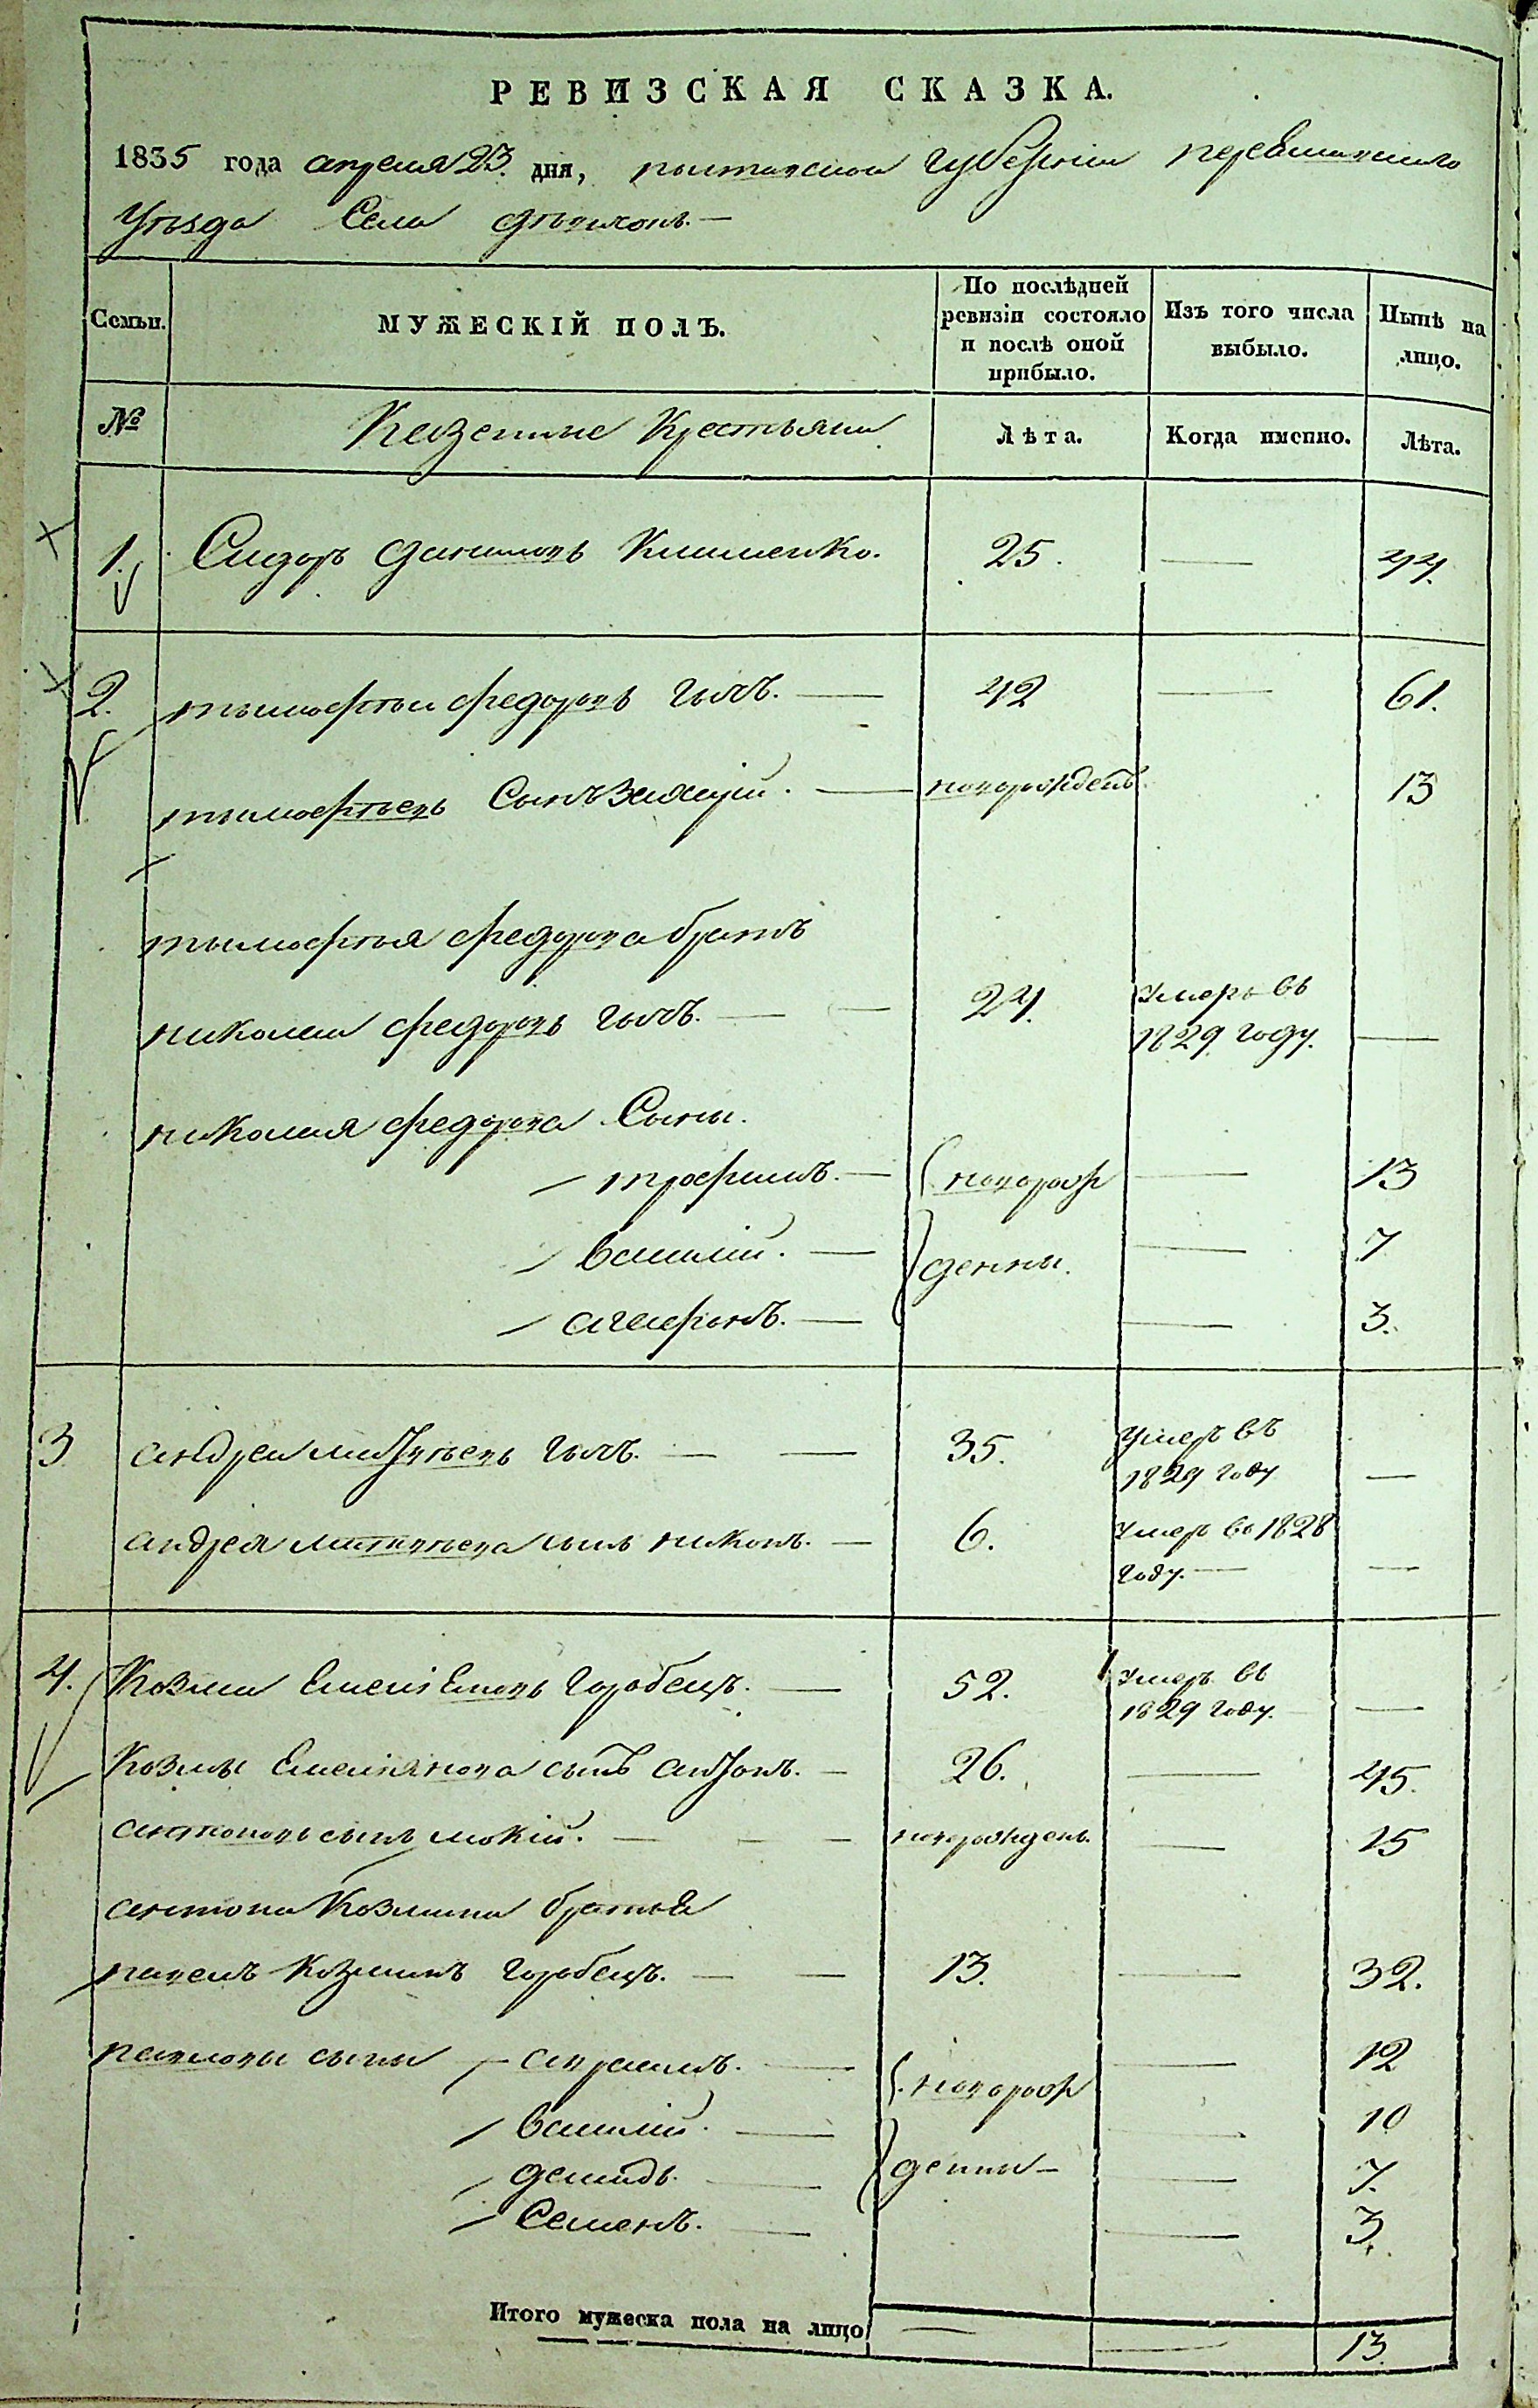 РЕВИЗСКАЯ СКАЗКА.
1835 года апреля 23. дня, полтавской губернии переяславского
уѣзда Села
Семьи.
МУЖЕСКІЙ ПОЛЪ.
По послѣдней ревизіи состояло и послѣ оной прибыло.
Изъ того числа выбыло.
Нынѣ на лицо.
№
Казенные Крестьяни
Лѣта.
Когда именно.
Лѣта.
1. Сидоръ даниловъ Клименко. 25. — 44.
2. тымофѣй федоровъ гычъ. — 42 — 61.
тымофѣевъ Сынъ — новорожденъ 13
тымофѣя федорова братъ
николай федоровъ гычъ. — — 24. умеръ въ 1829 году. —
николая федорова Сыны.
трофимъ. — новорож — 13
василій. — денны. — 7
агафонъ. — — 3.
3 андрей матвѣевъ гычъ. — — 35. умеръ въ 1829 году —
андрея матвѣева сынъ никонъ. — 6. умеръ во 1828 году. — —
4. Козма Емеліяновъ Горобецъ. — 52. умеръ въ 1829 году. —
Козмы Емеліянова сынъ антонъ. — 26. — 45.
антоновъ сынъ мокій. — — — новорожденъ. — 15
антона Козмина братья
павелъ Козминъ горобецъ. — — 13. — 32.
павловы сыны авраамъ. — новорож — 12
василій. — — 10
демидъ. — денны — — 7.
Семенъ. — — 3.
Итого мужеска пола на лицо — — 13.